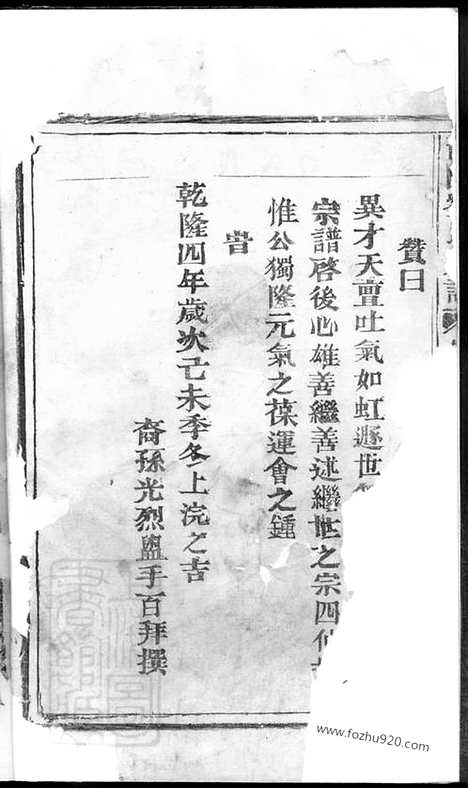 贊曰
異才天亶吐氣如虹遯世
宗譜啓後心雄善繼善述繼世之宗四
惟公獨隆元氣之葆運會之鍾
旹
乾隆四年歲次己未季冬上浣之吉
裔孫光烈盥手百拜撰
www.fozhu920.com